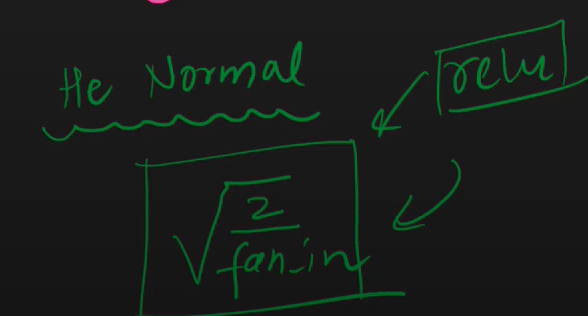 He Normal
relu
√(2/fan_in)